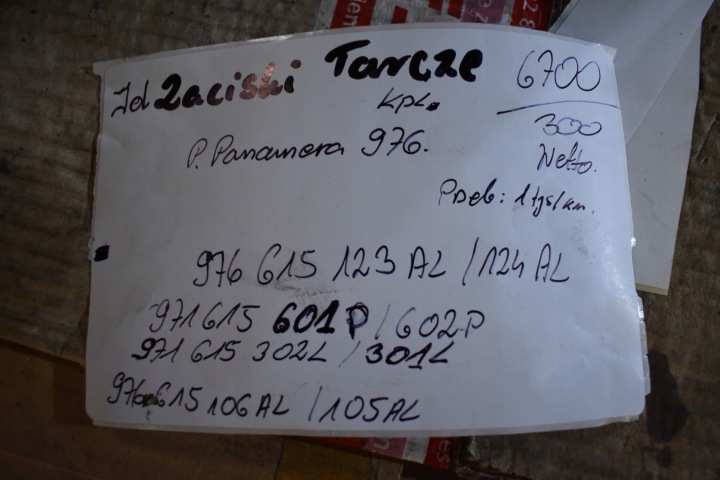 Jd Zaciski Tarcze 6700
kpl. 300
P. Panamera 976. Netto.
Przeb: 1 tyś/km.
976 615 123 AL / 124 AL
971 615 601 P / 602 P
971 615 302L / 301L
976 615 106 AL / 105 AL